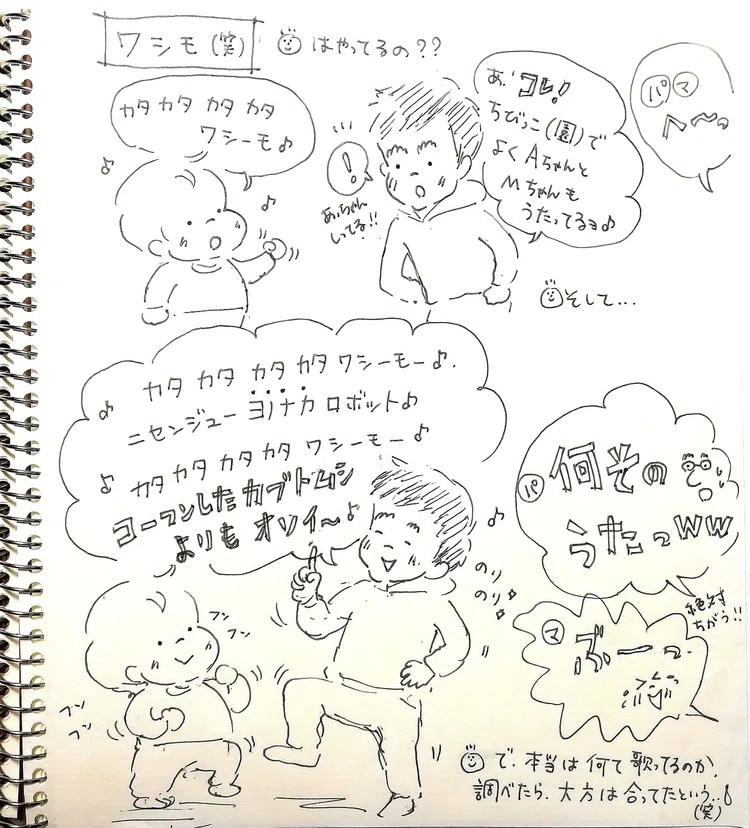 ワシモ(笑)
はやってるの??
カタカタ カタ カタ
ワシーモ♪
あっちゃん
しってる!!
!
あ、コレ!
ちびっこ(園)で
よくAちゃんと
Mちゃんも
うたってるョ♪
パ マ
へ〜っ
そして…
カタ カタ カタ カタ ワシーモー♪.
ニセンジュー ヨノナカ ロボット♪
♪ カタカタカタカタ ワシーモー♪
コーフンしたカブトムシ
よりも オソイ〜♪
のり
のり
フンフン
フンフン
パ 何その
うたっww
絶対
ちがう!!
マ ぶーっ
で、本当は何て歌ってるのか、
調べたら、大方は合ってたという..
(笑)